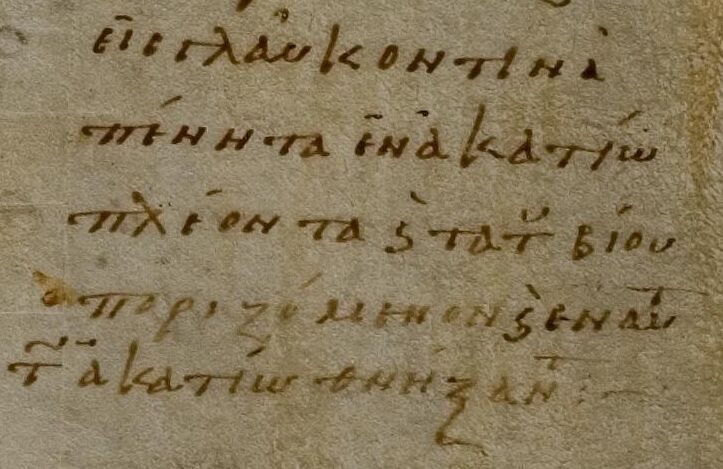 εἰς γλαῦκον τινὰ
πένητα ἐν ἀκατίω
πλέοντα ϗ τὰ τοῦ βίου
ποριζόμενον ϗ ἐν αυτ
τ ἀκατίω θνήξαντ :—